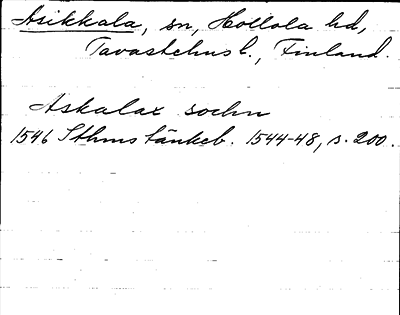 Asikkala, sn, Hollola hd,
Tavastehus l., Finland.
Askalax sochn
1546 Sthms tänkeb. 1544-48, s. 200.